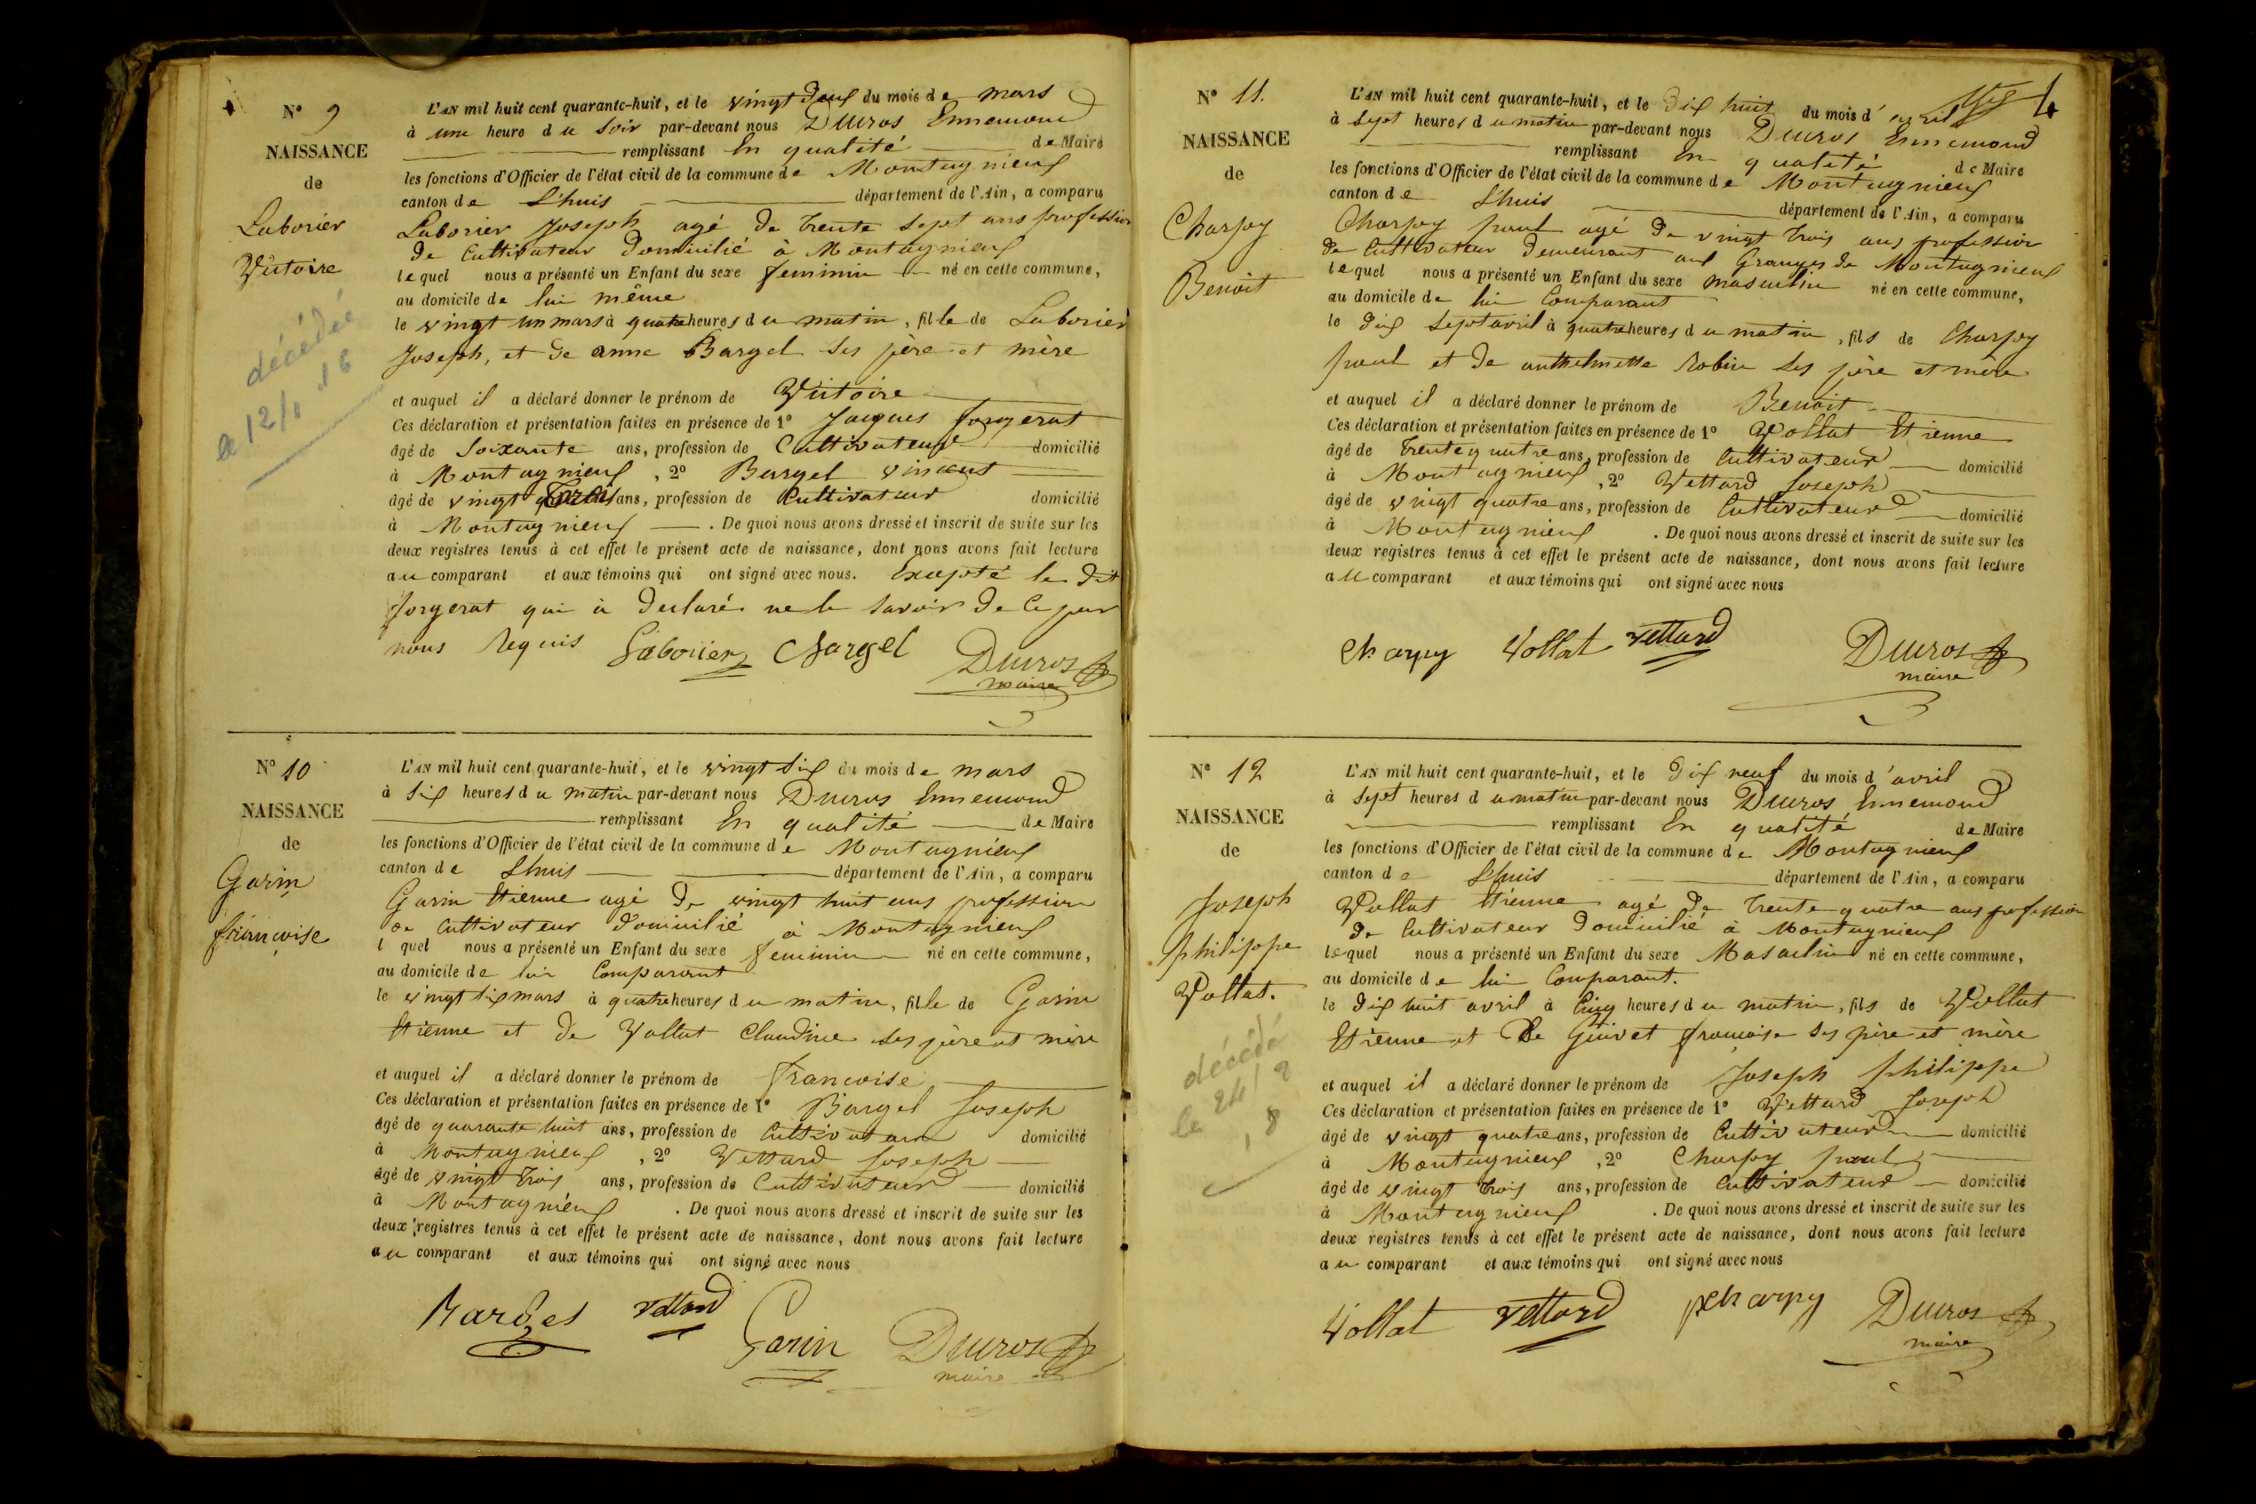 N° 9
NAISSANCE
de
Laborier
Victoire
décédée
le 12/1 16
L'AN mil huit cent quarante-huit, et le vingt deux du mois de mars
à une heure du soir par-devant nous Ducros Ennemond
remplissant En qualité de Maire
les fonctions d'Officier de l'état civil de la commune de Montagnieux
canton de Lhuis département de l'Ain, a comparu
Laborier Joseph agé de trente sept ans profession
de Cultivateur Domicilié à Montagnieux
lequel nous a présenté un Enfant du sexe feminin né en cette commune,
au domicile de lui même
le vingt un mars à quatre heures du matin, fille de Laborier
Joseph, et de anne Bargel ses père et mère
et auquel il a déclaré donner le prénom de Victoire
Ces déclaration et présentation faites en présence de 1° Jacques forgerat
âgé de soixante ans, profession de Cultivateur domicilié
à Montagnieux, 2° Bargel vincent
âgé de vingt trois ans, profession de Cultivateur domicilié
à Montagnieux. De quoi nous avons dressé et inscrit de suite sur les
deux registres tenus à cet effet le présent acte de naissance, dont nous avons fait lecture
au comparant et aux témoins qui ont signé avec nous. Excepté le dit
forgerat qui à declaré ne le savoir de ce par
nous Requis Laborier Bargel Ducros
maire
N° 10
NAISSANCE
de
Garin
françoise
L'AN mil huit cent quarante-huit, et le vingt six du mois de mars
à six heures du matin par-devant nous Ducros Ennemond
remplissant En qualité de Maire
les fonctions d'Officier de l'état civil de la commune de Montagnieux
canton de Lhuis département de l'Ain, a comparu
Garin Etienne agé de vingt huit ans profession
de Cultivateur domicilié à Montagnieux
l quel nous a présenté un Enfant du sexe feminin né en cette commune,
au domicile de lui Comparant
le vingt six mars à quatre heures du matin, fille de Garin
Etienne et de Vollat Claudine ses père et mère
et auquel il a déclaré donner le prénom de françoise
Ces déclaration et présentation faites en présence de 1° Bargel Joseph
âgé de quarante huit ans, profession de Cultivateur domicilié
à Montagnieux, 2° Vettard Joseph
âgé de vingt trois ans, profession de Cultivateur domicilié
à Montagnieux. De quoi nous avons dressé et inscrit de suite sur les
deux registres tenus à cet effet le présent acte de naissance, dont nous avons fait lecture
au comparant et aux témoins qui ont signé avec nous
Bargel Vettard Garin Ducros
maire
N° 11.
NAISSANCE
de
Charpy
Benoit
L'AN mil huit cent quarante-huit, et le dix huit du mois d'avril
à sept heures du matin par-devant nous Ducros Ennemond
remplissant En qualité de Maire
les fonctions d'Officier de l'état civil de la commune de Montagnieux
canton de Lhuis département de l'Ain, a comparu
Charpy paul agé de vingt trois ans profession
de Cultivateur Demeurant aux Granges de Montagnieux
lequel nous a présenté un Enfant du sexe masculin né en cette commune,
au domicile de lui Comparant
le dix sept avril à quatre heures du matin, fils de Charpy
paul et de anthelmette Robin ses père et mère
et auquel il a déclaré donner le prénom de Benoit
Ces déclaration et présentation faites en présence de 1° Vollat Etienne
âgé de trente quatre ans, profession de Cultivateur domicilié
à Montagnieux, 2° Vettard Joseph
âgé de vingt quatre ans, profession de Cultivateur domicilié
à Montagnieux. De quoi nous avons dressé et inscrit de suite sur les
deux registres tenus à cet effet le présent acte de naissance, dont nous avons fait lecture
au comparant et aux témoins qui ont signé avec nous
charpy Vollat vettard Ducros
maire
N° 12
NAISSANCE
de
Joseph
philippe
Vollat.
décédé
le 24/2
18
L'AN mil huit cent quarante-huit, et le dix neuf du mois d'avril
à sept heures du matin par-devant nous Ducros Ennemond
remplissant En qualité de Maire
les fonctions d'Officier de l'état civil de la commune de Montagnieux
canton de Lhuis département de l'Ain, a comparu
Vollat Etienne agé de trente quatre ans profession
de Cultivateur Domicilié à Montagnieux
lequel nous a présenté un Enfant du sexe Masculin né en cette commune,
au domicile de lui Comparant.
le dix huit avril à cinq heures du matin, fils de Vollat
Etienne et De françoise ses père et mère
et auquel il a déclaré donner le prénom de Joseph philippe
Ces déclaration et présentation faites en présence de 1° Vettard Joseph
âgé de vingt quatre ans, profession de Cultivateur domicilié
à Montagnieux, 2° Charpy paul
âgé de vingt trois ans, profession de Cultivateur domicilié
à Montagnieux. De quoi nous avons dressé et inscrit de suite sur les
deux registres tenus à cet effet le présent acte de naissance, dont nous avons fait lecture
au comparant et aux témoins qui ont signé avec nous
Vollat vettard pcharpy Ducros
maire